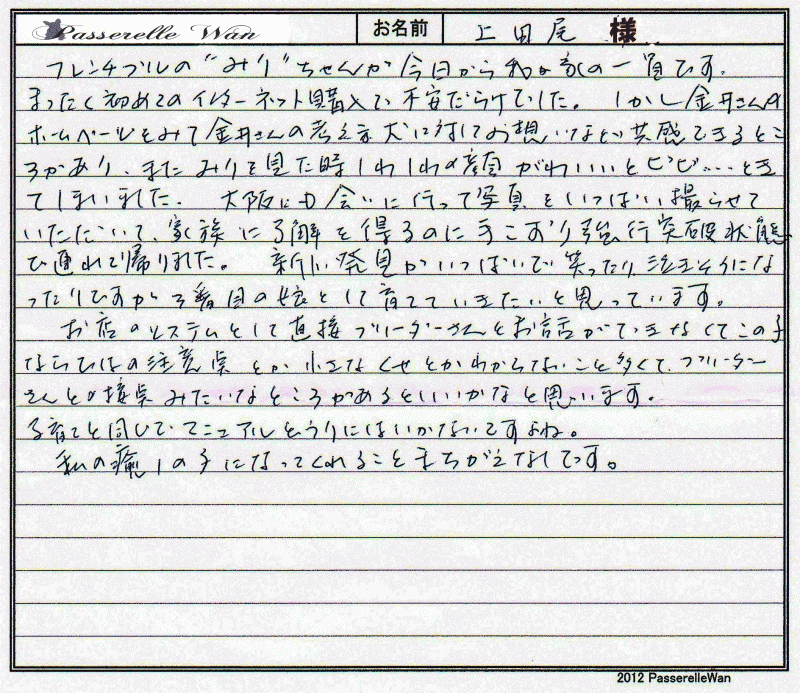 Passerelle Wan お名前 上田尾 様
フレンチブルの"みり"ちゃんが今日から我が家の一員です。
まったく初めてのインターネット購入で不安だらけでした。しかし金井さんの
ホームページをみて金井さんの考え方犬に対してお想いなど共感できるとこ
ろがあり、またみりを見た時しわしわの顔がかわいいとビビ……ときて
てしまいました。大阪に出会いに行って写真をいっぱい撮らせて
いただいて、家族に了解を得るのに手こずり強行突破状態
で連れて帰りました。新しい発見がいっぱいで笑ったり泣きそうにな
ったりですが3番目の娘として育てていきたいと思っています。
お店のシステムとして直接ブリーダーさんとお話ができなくてこの子
ならではの注意点とか小さなくせとかわからないこと多くて、ブリーダー
さんとの接点みたいなところがあるといいかなと思います。
子育てと同じでマニュアルどうりにはいかないですよね。
私の癒しの子になってくれることまちがえなしです。
2012 PasserelleWan